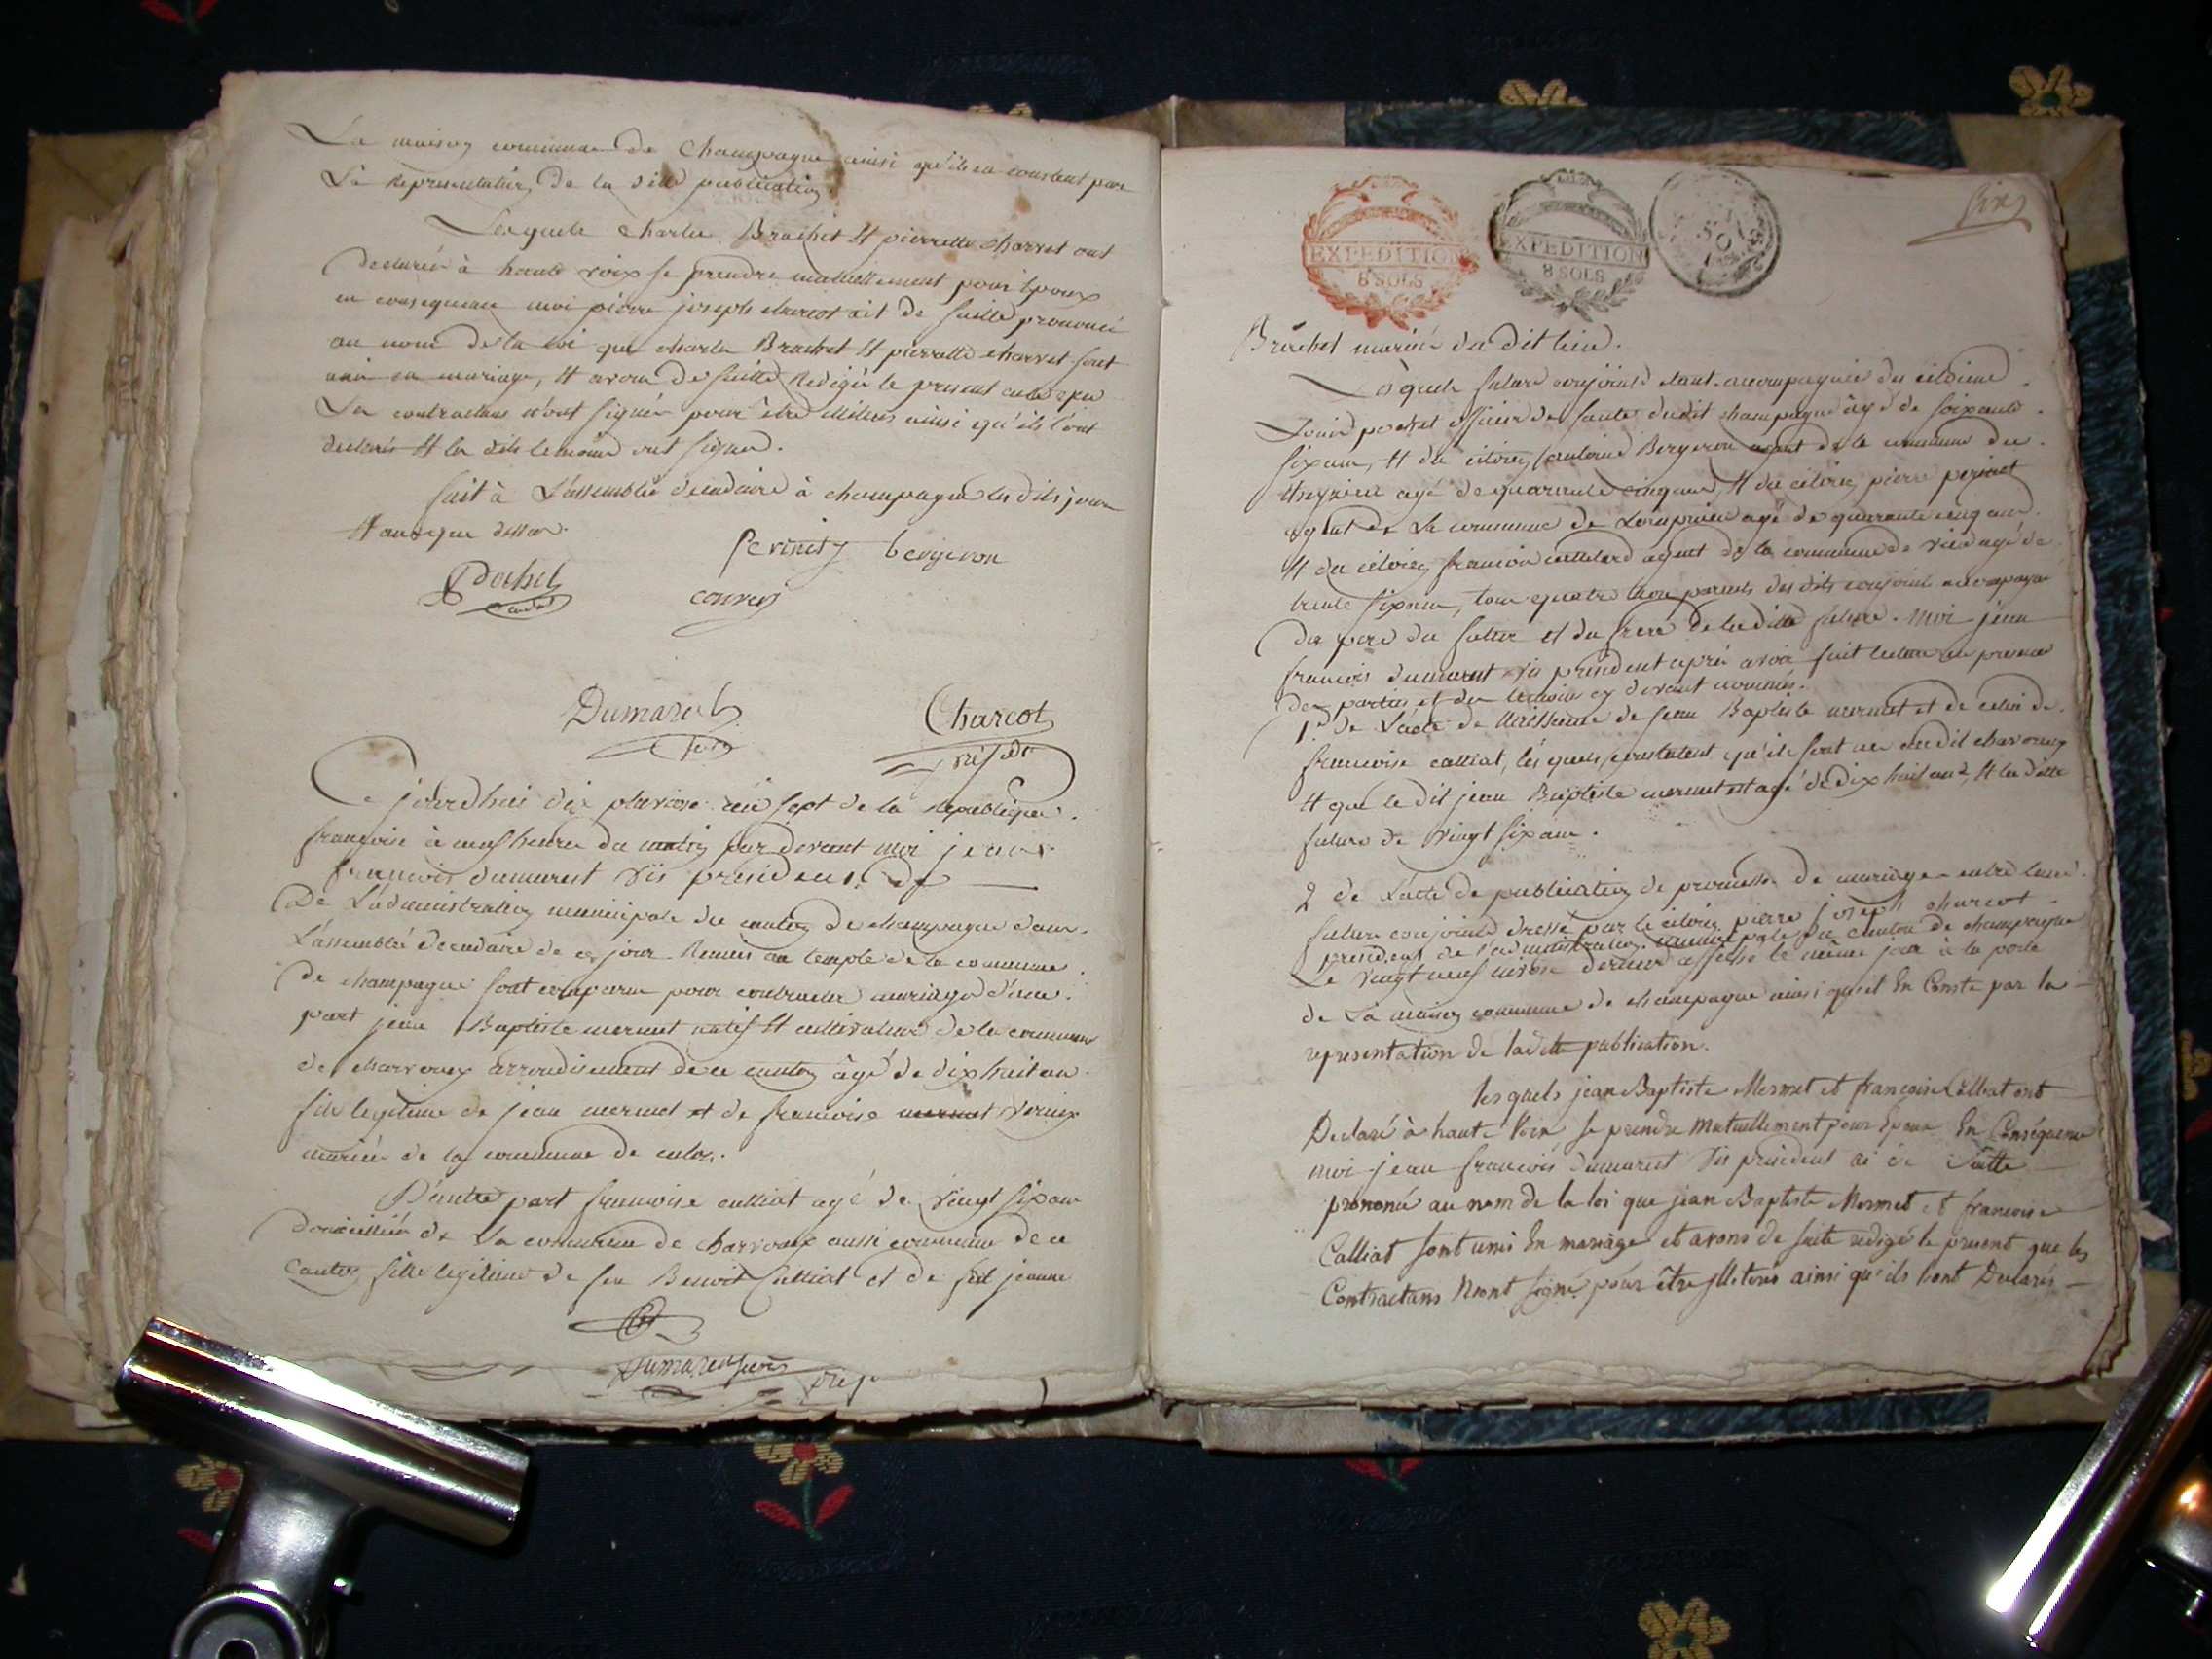 La maison commune de Champagne ainsi qu'il en constent par
La Representation de la ditte publication
Lesquels charles Brachet et pierrette charvet ont
declarés à haute voix se prendre mutuellement pour Epoux
en consequence moi pierre joseph charcot ait de suitte prononcé
au nom de la loi que charles Brachet et pierrette charvet sont
unis en mariage, et avons de suitte Redigés le present acte que
Les contractans n'ont signés pour être illiteres ainsi qu'ils l'ont
declarés et les dits temoins ont signés.
fait à L'assemblée decadaire à champagne les dits jour
et an que dessus.
perinet bergeron
Pochet
Dumarest
Charcot
présidt
Ce jourdhui dix pluviose an sept de la republique
françoise à neuf heures du matin par devant moi jean
francois dumarest vis president de
De L'administration municipale du canton de champagne dans
L'assemblée decadaire de ce jour Reunis au temple de la commune
de champagne sont comparus pour contracter mariage d'une
part jean Baptiste mermet natif et cultivateur de la commune
de charvonex arrondissement de ce canton âgé de dix huit ans
fils legitime de jean mermet et de francoise mermet
mariés de la commune de culoz.
D'autre part francoise culliat agé de vingt six ans
domiciliée de la commune de charvonex aussi commune de ce
Canton, fille legitime de feu Benoit Culliat et de jeanne
Dumarest
EXPEDITION
8 SOLS
EXPEDITION
8 SOLS
six
Brachet mariés du dit lieu.
Lesquels futurs conjoints etant accompagnés du citoiens
Louis pochet officier de santé dudit champagne âgé de soixante
six ans, et du citoien antoine Bergeron agent de la commune de
agé de quarante cinq ans, et du citoien pierre perinet
agent de La commune de Lompnieu agé de quarante cinq ans
et du citoien francois agent de la commune de agé de
trente six ans, tous quatre non parents des dits conjoints accompagnés
du pere du futur et du frere de laditte future. moi jean
francois dumarest vis president aprés avoir fait lecture en presence
des parties et des temoins cy devant nommés.
1.º de L'acte de naissance de jean Baptiste mermet et de celui de
francoise culliat, lesquels constatent qu'ils sont nés audit charvonex
et que le dit jean Baptiste mermet est agé de dix huit ans, et la ditte
future de vingt six ans.
2 de L'acte de publication de promesse de mariage entre lesdi
futurs conjoints dressé par le citoien pierre joseph charcot
president de l'administration municipale du canton de champagne
Le vingt neuf nivose dernier affiché le même jour à la porte
de La maison commune de champagne ainsi qu'il En Conste par la
representation de ladite publication.
les quels jean Baptiste Mermet et francoise Culliat ont
Declaré à haute Voix, se prendre Mutuellement pour Epoux En Conséquence
moi jean francois dumarest vis president ai de Suitte
prononcé au nom de la loi que jean Baptiste Mermet et francoise
Calliat sont unis En mariage et avons de suite redigé le present que les
Contractans Nont signé pour être illeterés ainsi qu'ils lont Declarés